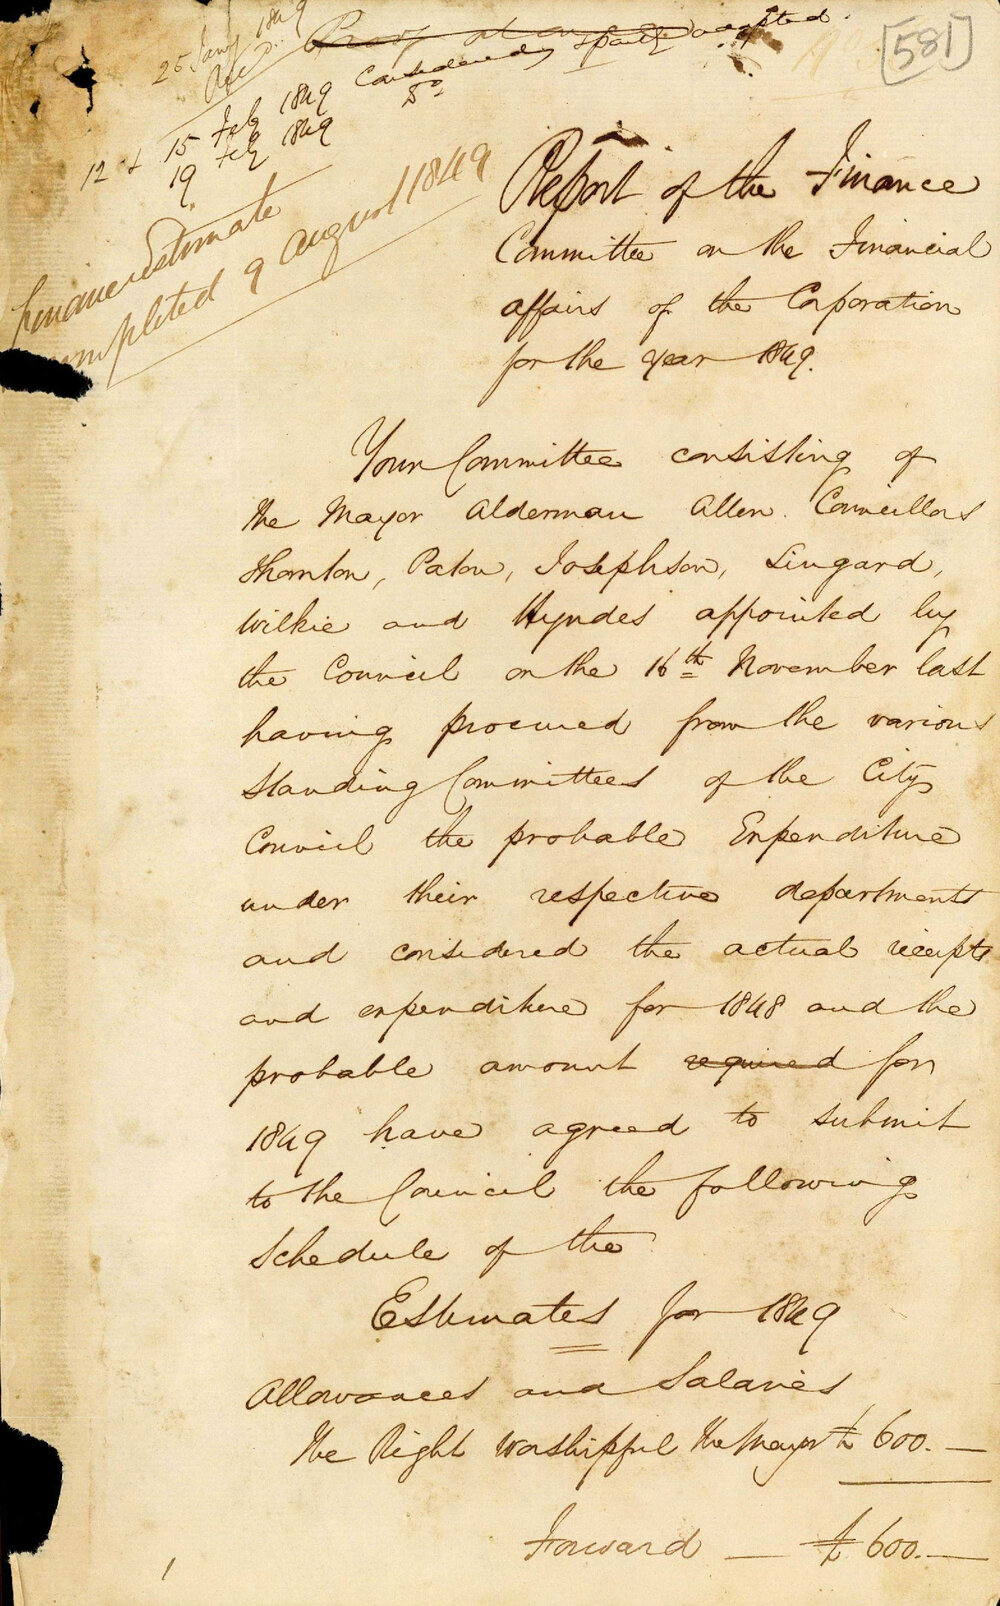 [581]
25 Jany 1849
15 Feby 1849 Considered & partly adopted
12 + 19 Feby 1849 Do
Finance Estimate
completed 9 August 1849
Report of the Finance
Committee on the Financial
affairs of the Corporation
for the year 1849.
Your Committee consisting of
the Mayor Alderman Allen. Councillors
Thornton, Paton, Josephson, Lingard,
Wilkie and Hyndes appointed by
the Council on the 16th November last
having procured from the various
Standing Committees of the City
Council the probable Expenditure
under their respective departments
and considered the actual receipts
and expenditure for 1848 and the
probable amount required for
1849 have agreed to submit
to the Council the following
Schedule of the
Estimates for 1849
Allowances and Salaries
The Right Worshipful the Mayor £ 600. —
Forward — £ 600. —